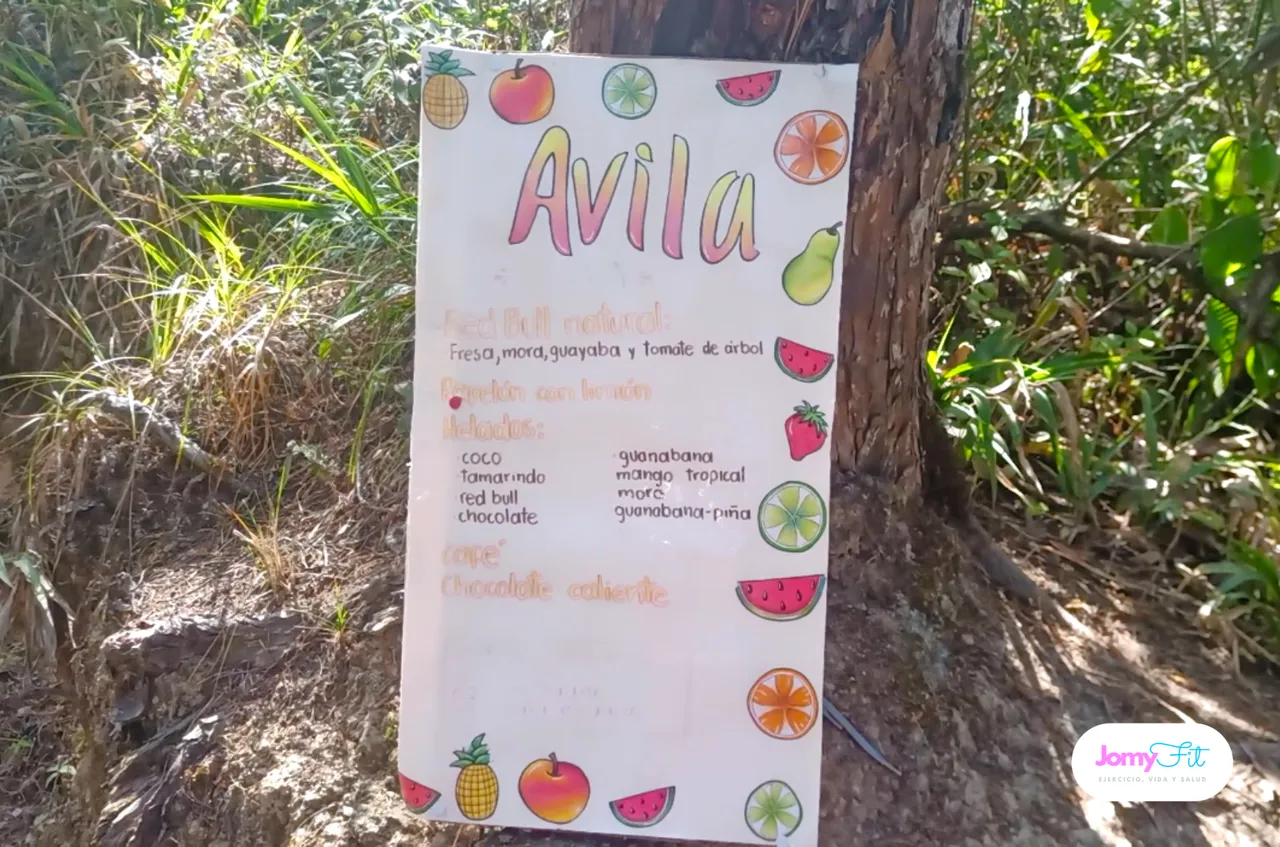 Avila
Red Bull natural:
Fresa, mora, guayaba y tomate de árbol
Papelón con limón
Helados:
·coco ·guanabana
·tamarindo mango tropical
red bull mora
·chocolate guanabana-piña
café
Chocolate caliente
JomyFit
EJERCICIO, VIDA Y SALUD